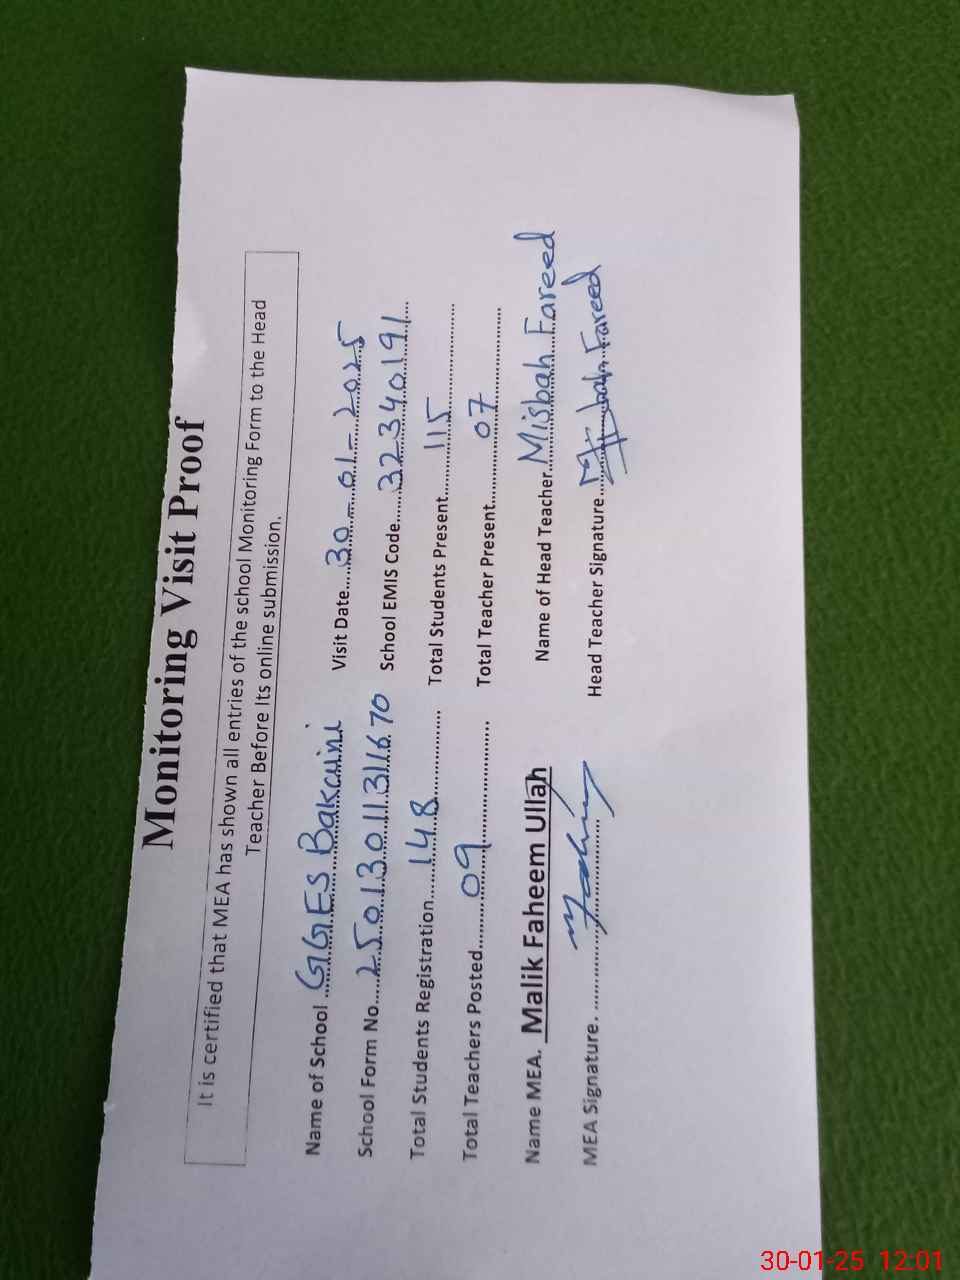 Monitoring Visit Proof
It is certified that MEA has shown all entries of the school Monitoring Form to the Head
Teacher Before Its online submission.
Name of School GGES Bakaini Visit Date 30-01-2025
School Form No. 25013011311670 School EMIS Code 32340191
Total Students Registration 148 Total Students Present 115
Total Teachers Posted 09 Total Teacher Present 07
Name MEA. Malik Faheem Ullah Name of Head Teacher Misbah Fareed
MEA Signature. Head Teacher Signature Misbah Fareed
30-01-25 12:01